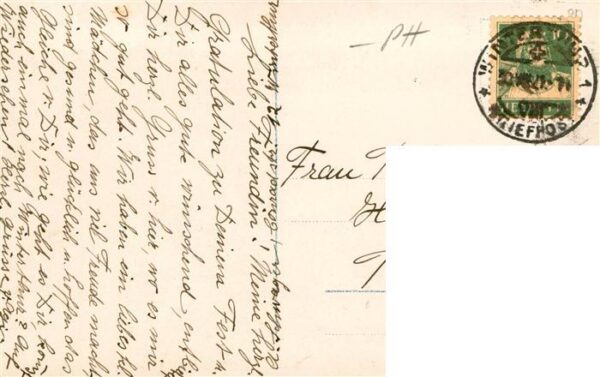 Liebe Freundin! Meine herzl.
Gratulation zu Deinem Fest u.
Dir alles gute wünschend, entb.
Dir herzl. Gruss v. hier, wo es mir
so gut geht. Wir haben ein liebes kl.
Mädchen, das uns viel Freude macht
sind gesund u. glücklich u. hoffen das
Gleiche v. Dir, wie geht es Dir, kom
auch einmal nach Winterthur? Auf
Wiedersehen! herzl. Grüsse
– PH
WINTERTHUR 1
BRIEFPOST
HELVETIA
Frau